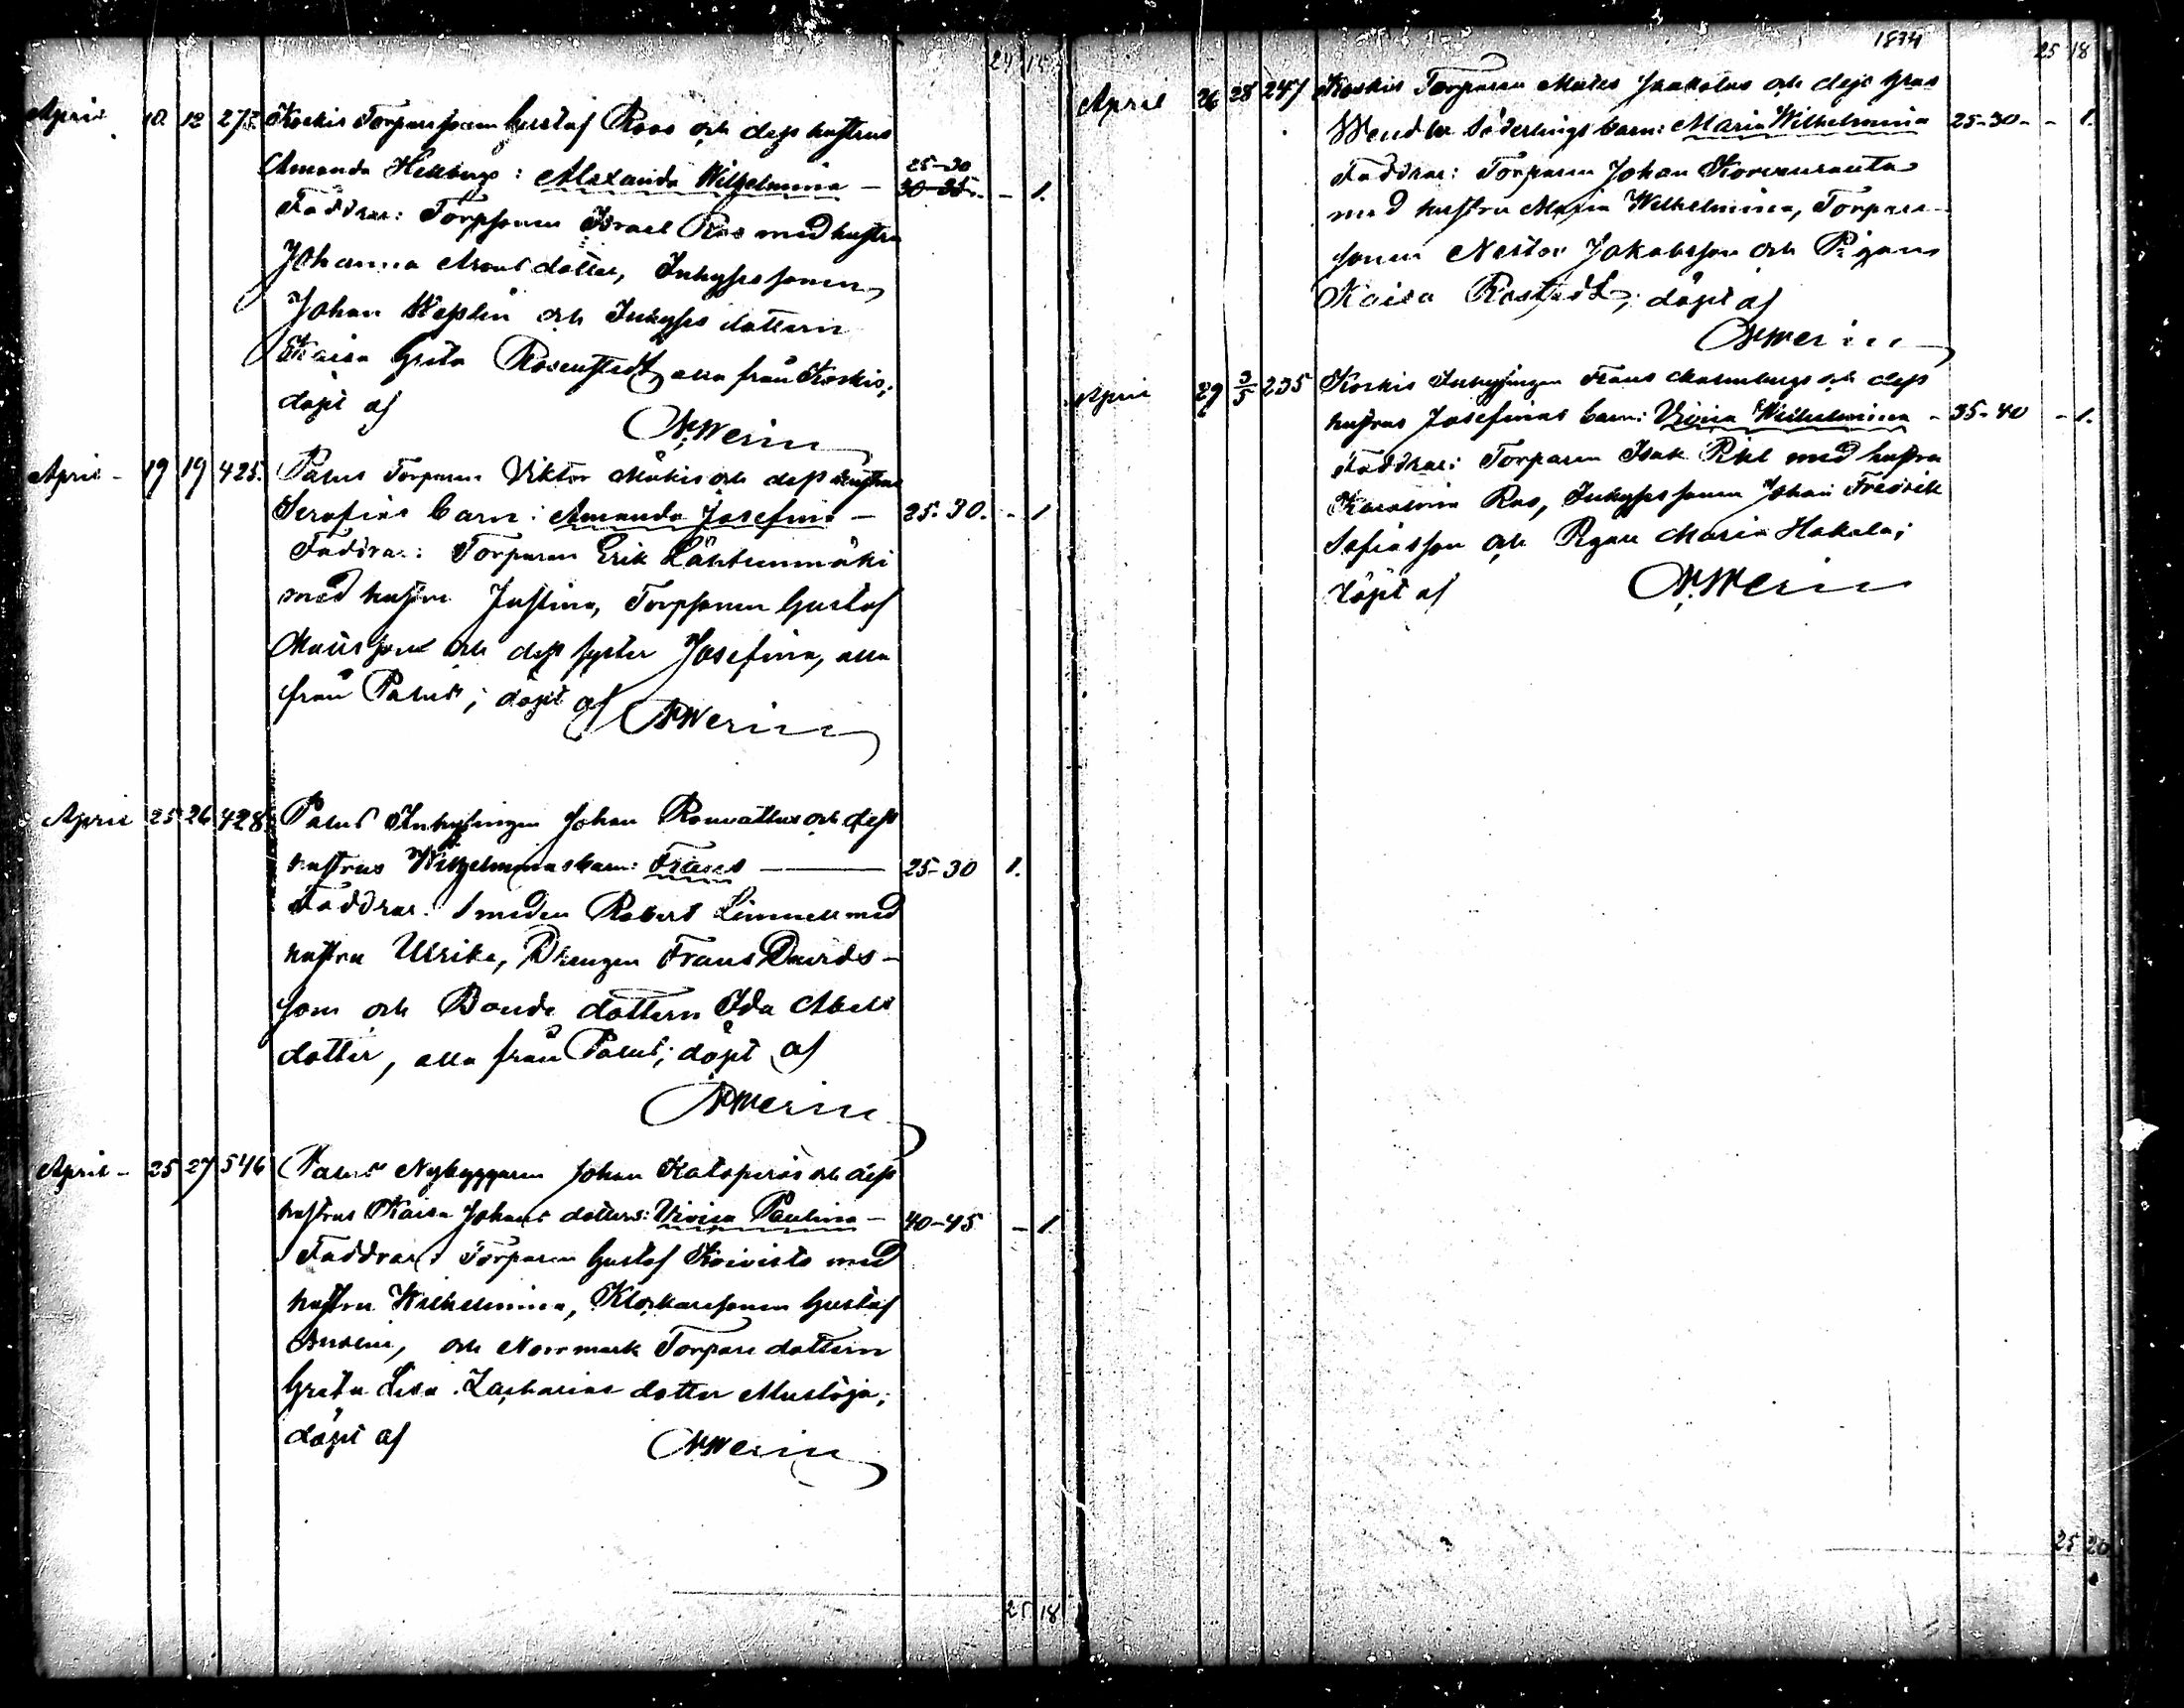 24 15
April 10. 12 273. Koskis Torparesonen Gustaf Roos och dess hustrus
Amanda Hellbergs: Alexandra Wilhelmina — 25-30 30-35. - 1.
Faddrar: Torpsonen Israel Ros med hustru
Johanna Arons dotter, Inhyses sonen
Johan Weplin och Inhyses dottern
Kaisa Greta Rosenstedt, alla från Koskis;
döpt af
N. Merin
April - 19 19 425. Palus Torparen Viktor Mäkis och dess hustrus
Serafias barn: Amanda Josefina — 25-30. - 1
Faddrar: Torparen Erik Lähteenmäki
med hustru Justina, Torpsonen Gustaf
och dess syster Josefina, alla
från Palus; döpt af N Merin
April 25 26 428 Palus Inhysingen Johan och dess
hustrus Wilhelminas barn: Frans — 25-30 1.
Faddrar: Smeden Robert Limnell med
hustru Ulrika, Drengen Frans Davids-
son och Bonde dottern Ida Abels
dotter, alla från Palus; döpt af
N Merin
April - 25 27 546 Palus Nybyggaren Johan Kataperis och dess
hustrus Kaisa Johans dotters: Viviga Paulina — 40-45 - 1
Faddrar: Torparen Gustaf Koivisto med
hustru Wilhelmina, Klockaresonen Gustaf
och Norrmark Torpare dottern
Greta Lisa Zacharias dotter Mustoja;
döpt af N Merin
25 18
1874
25 18
April 26 28 247 Koskis Torparen Matts Jaakolas och dess hus
Wendla Söderlings barn: Maria Wilhelmina 25-30- - 1.
Faddrar: Torparen Johan Korvenranta
med hustru Maria Wilhelmina, Torpare-
sonen Nestor Jakobsson och Pigan
Kaisa Rostedt; döpt af
N Merin
April 29 3/5 235 Koskis Inhysingen Frans Malmbergs och dess
hustrus Josefinas barn: Viviga Wilhelmina - 35-40 - 1.
Faddrar: Torparen Isak Pihl med hustru
Karolina Ros, Inhyses sonen Johan Fredrik
Sefiasson och Pigan Maria Hakala;
döpt af N. Merin
25 20